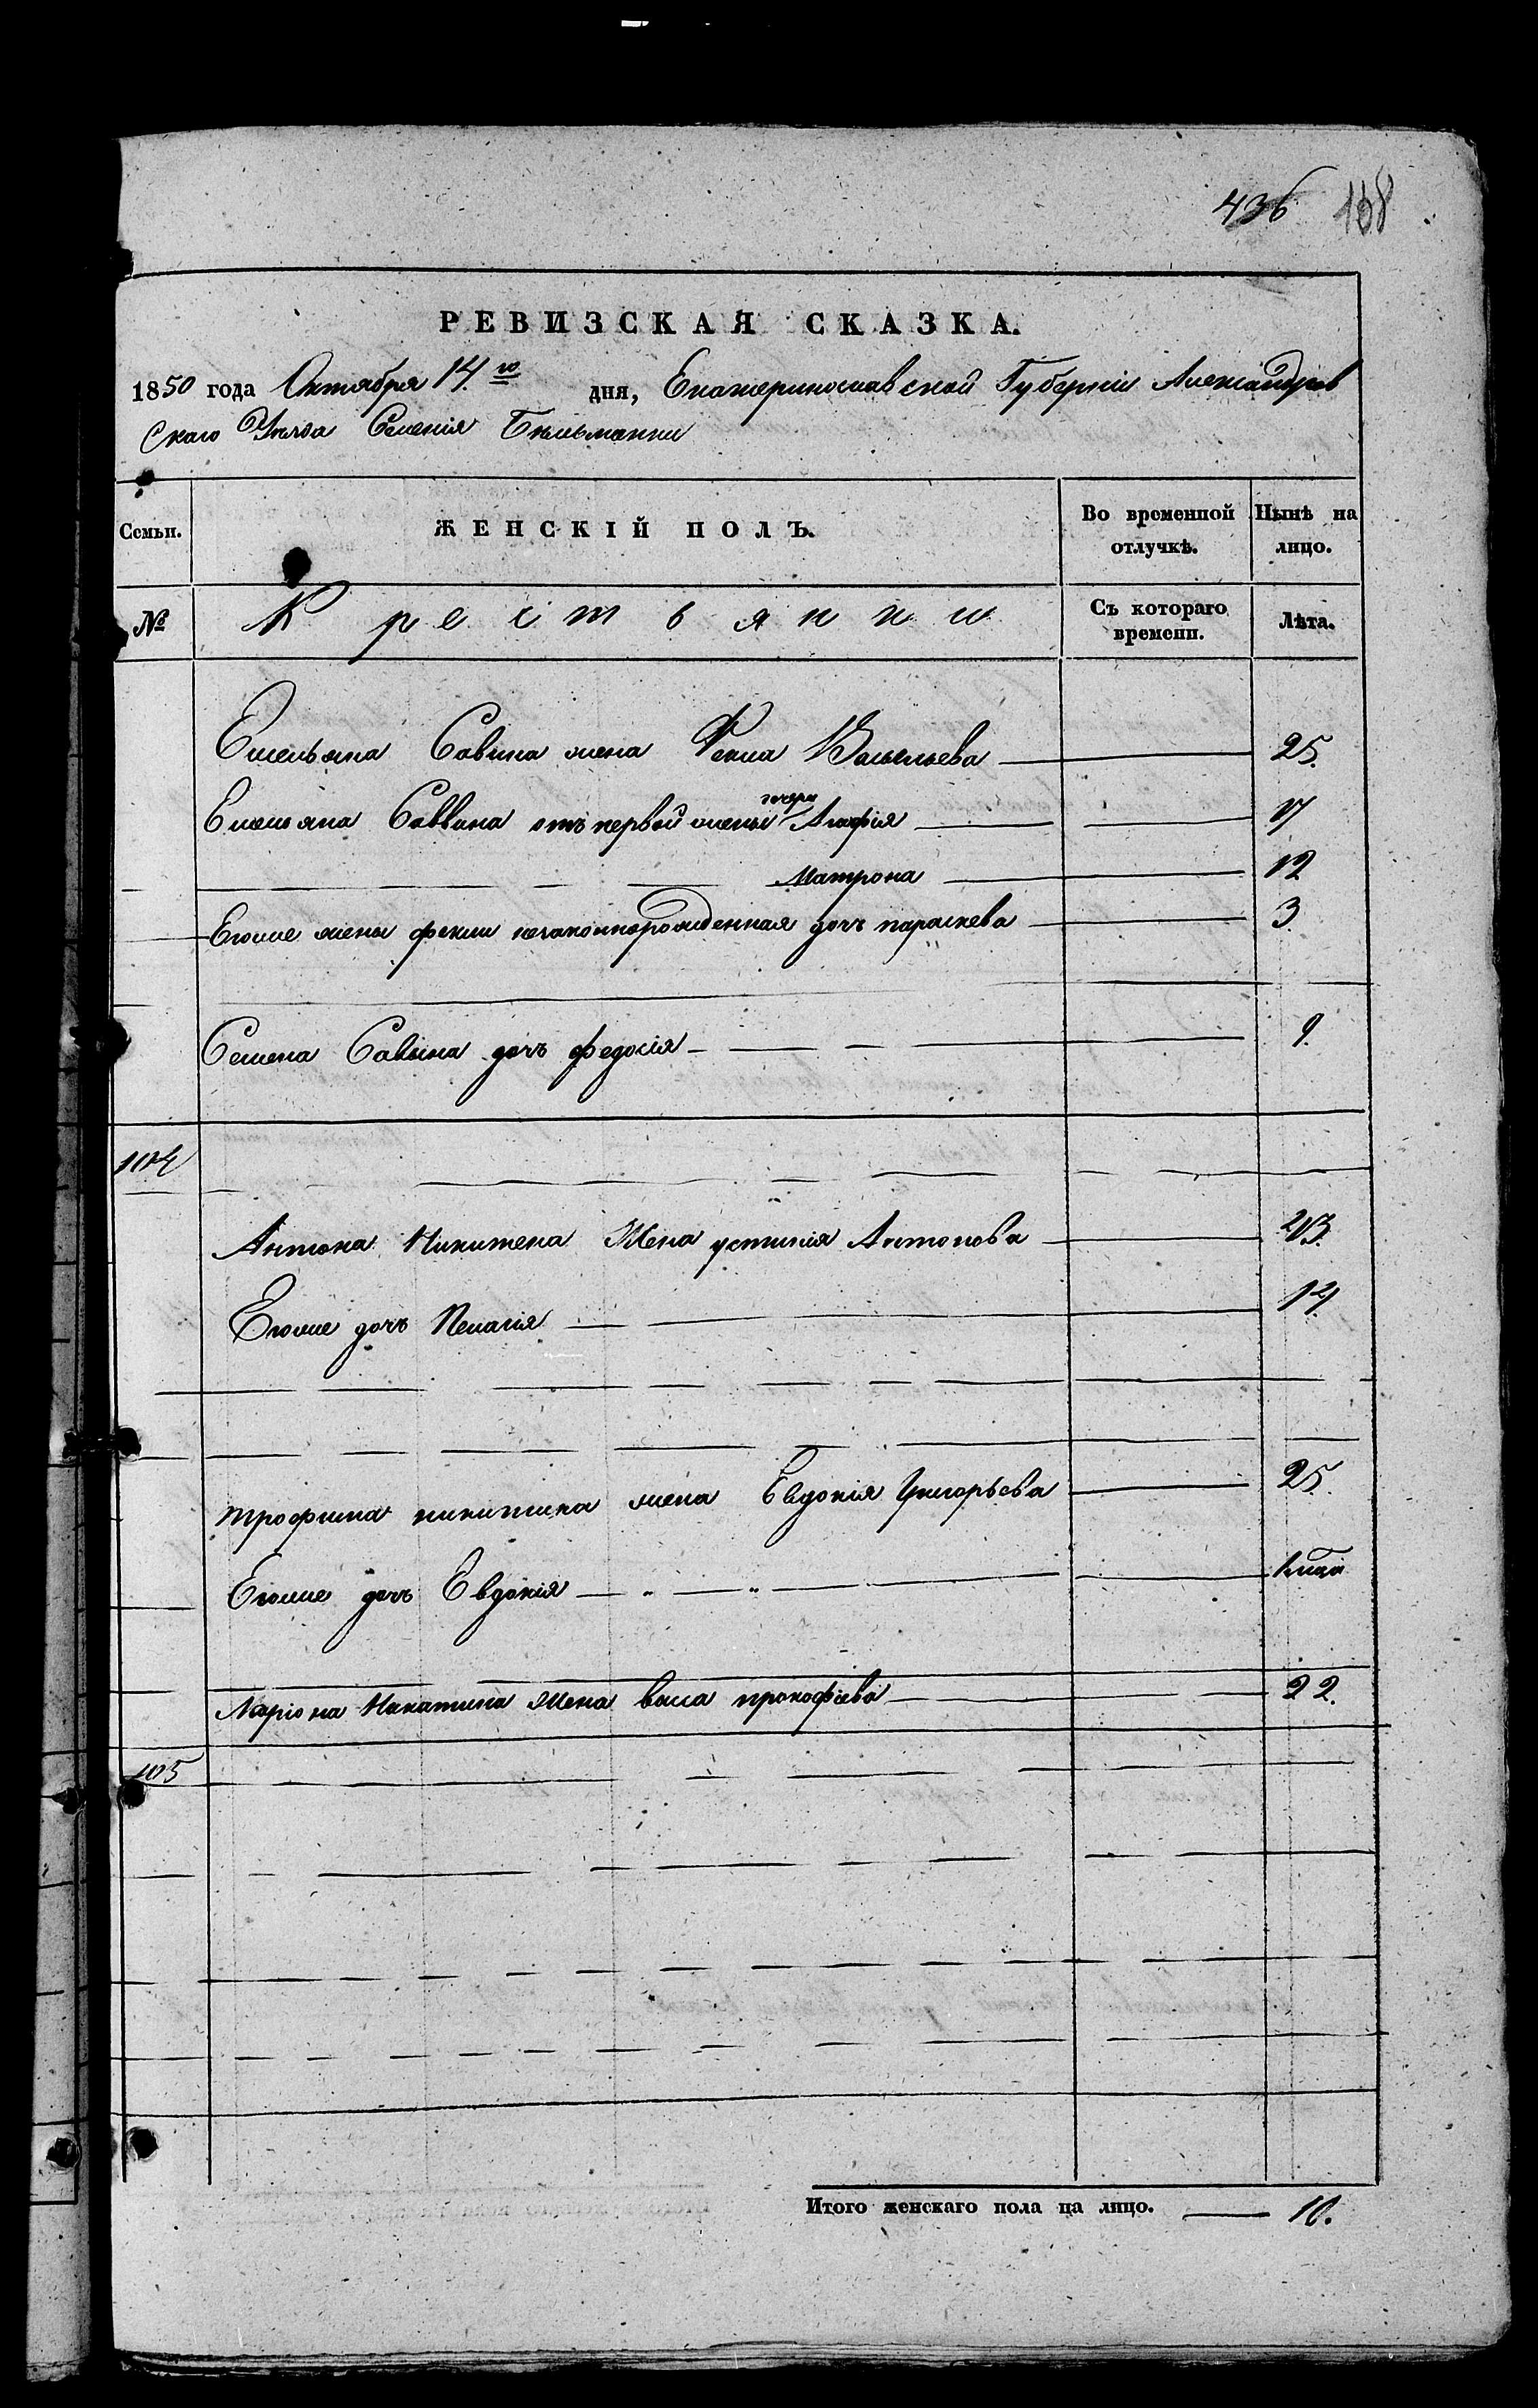 436 158
РЕВИЗСКАЯ СКАЗКА.
1850 года Октября 14.го дня, Екатеринославской Губерніи Александров
скаго Уезда Селенія Бельманки
Семьи. ЖЕНСКІЙ ПОЛЪ. Во временной отлучкѣ. Нынѣ на лицо.
№ Крестьянки Съ котораго времени. Лѣта.
Емельяна Савина жена Фекла Васильева 25.
Емельяна Саввина отъ первой жены дочери Агафія 17
Матрона 12
Егоже жены феклы незаконнорожденная дочь параскева 3.
Семена Савина дочь федосія 9.
104
Антона Никитена Жена устинія Антонова 43.
Егоже дочь Пелагія 14.
трофима никитина жена Евдокія Григорьева 25.
Егоже дочь Евдокія
Ларіона Никитина Жена васа прокофіева 22.
105
Итого женскаго пола на лицо. 10.